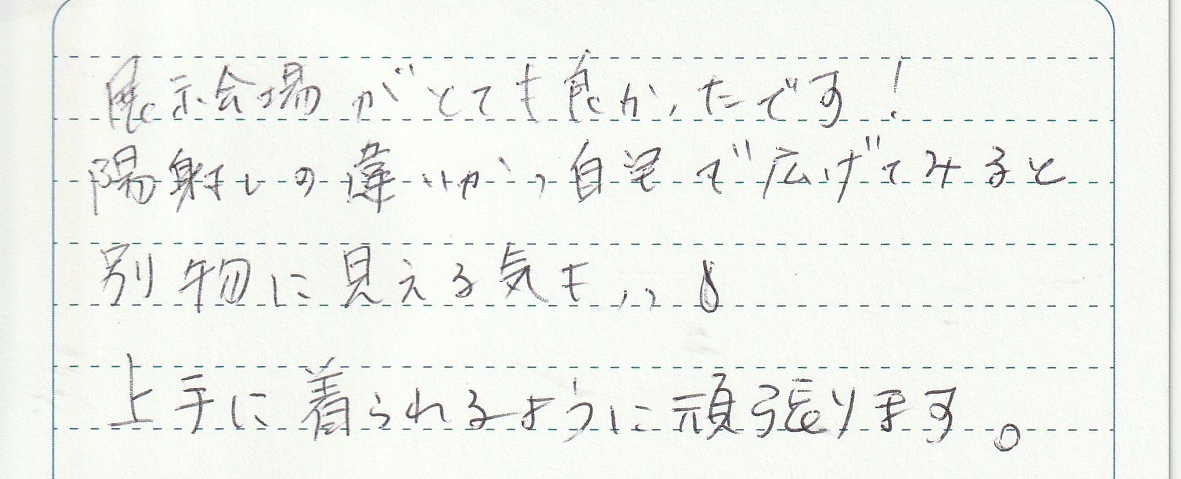 展示会場がとても良かったです!
陽射しの違いか、自宅で広げてみると
別物に見える気も、、、
上手に着られるように頑張ります。